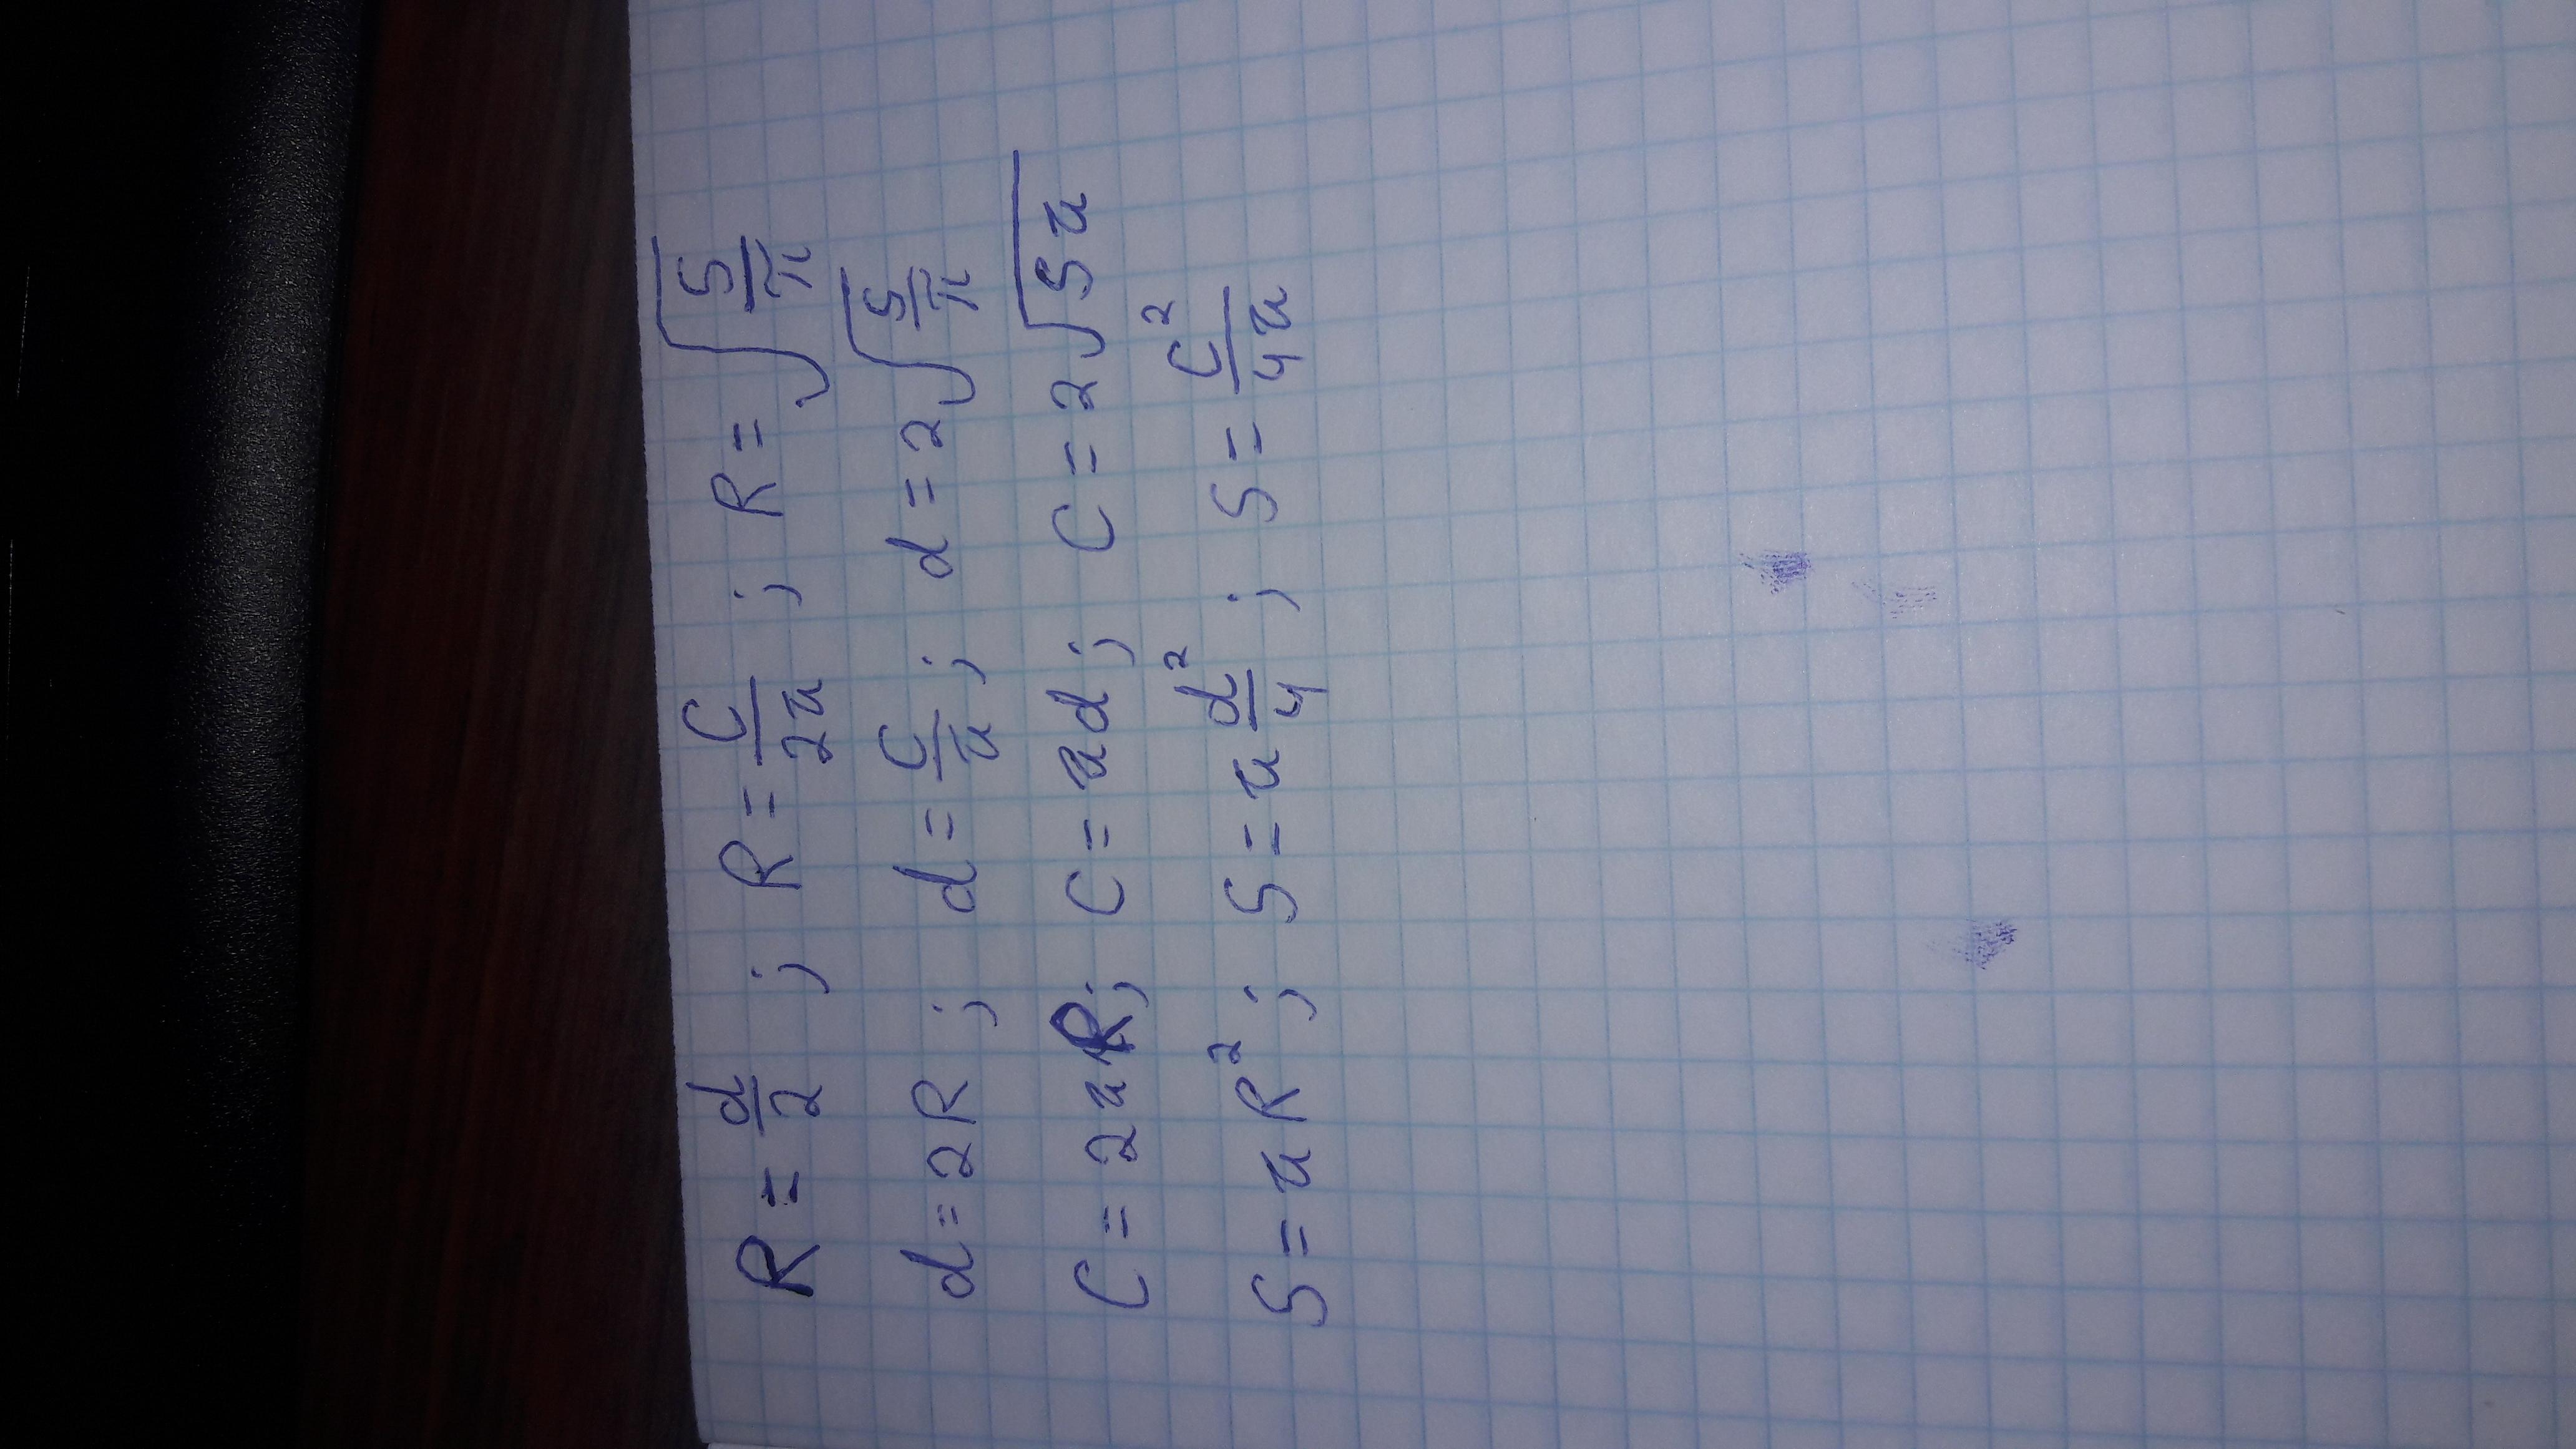 R = d/2 ; R = C/2π ; R = √(S/π)
d = 2R ; d = C/π ; d = 2√(S/π)
C = 2πR ; C = πd ; C = 2√(Sπ)
S = πR² ; S = π d²/4 ; S = C²/4π